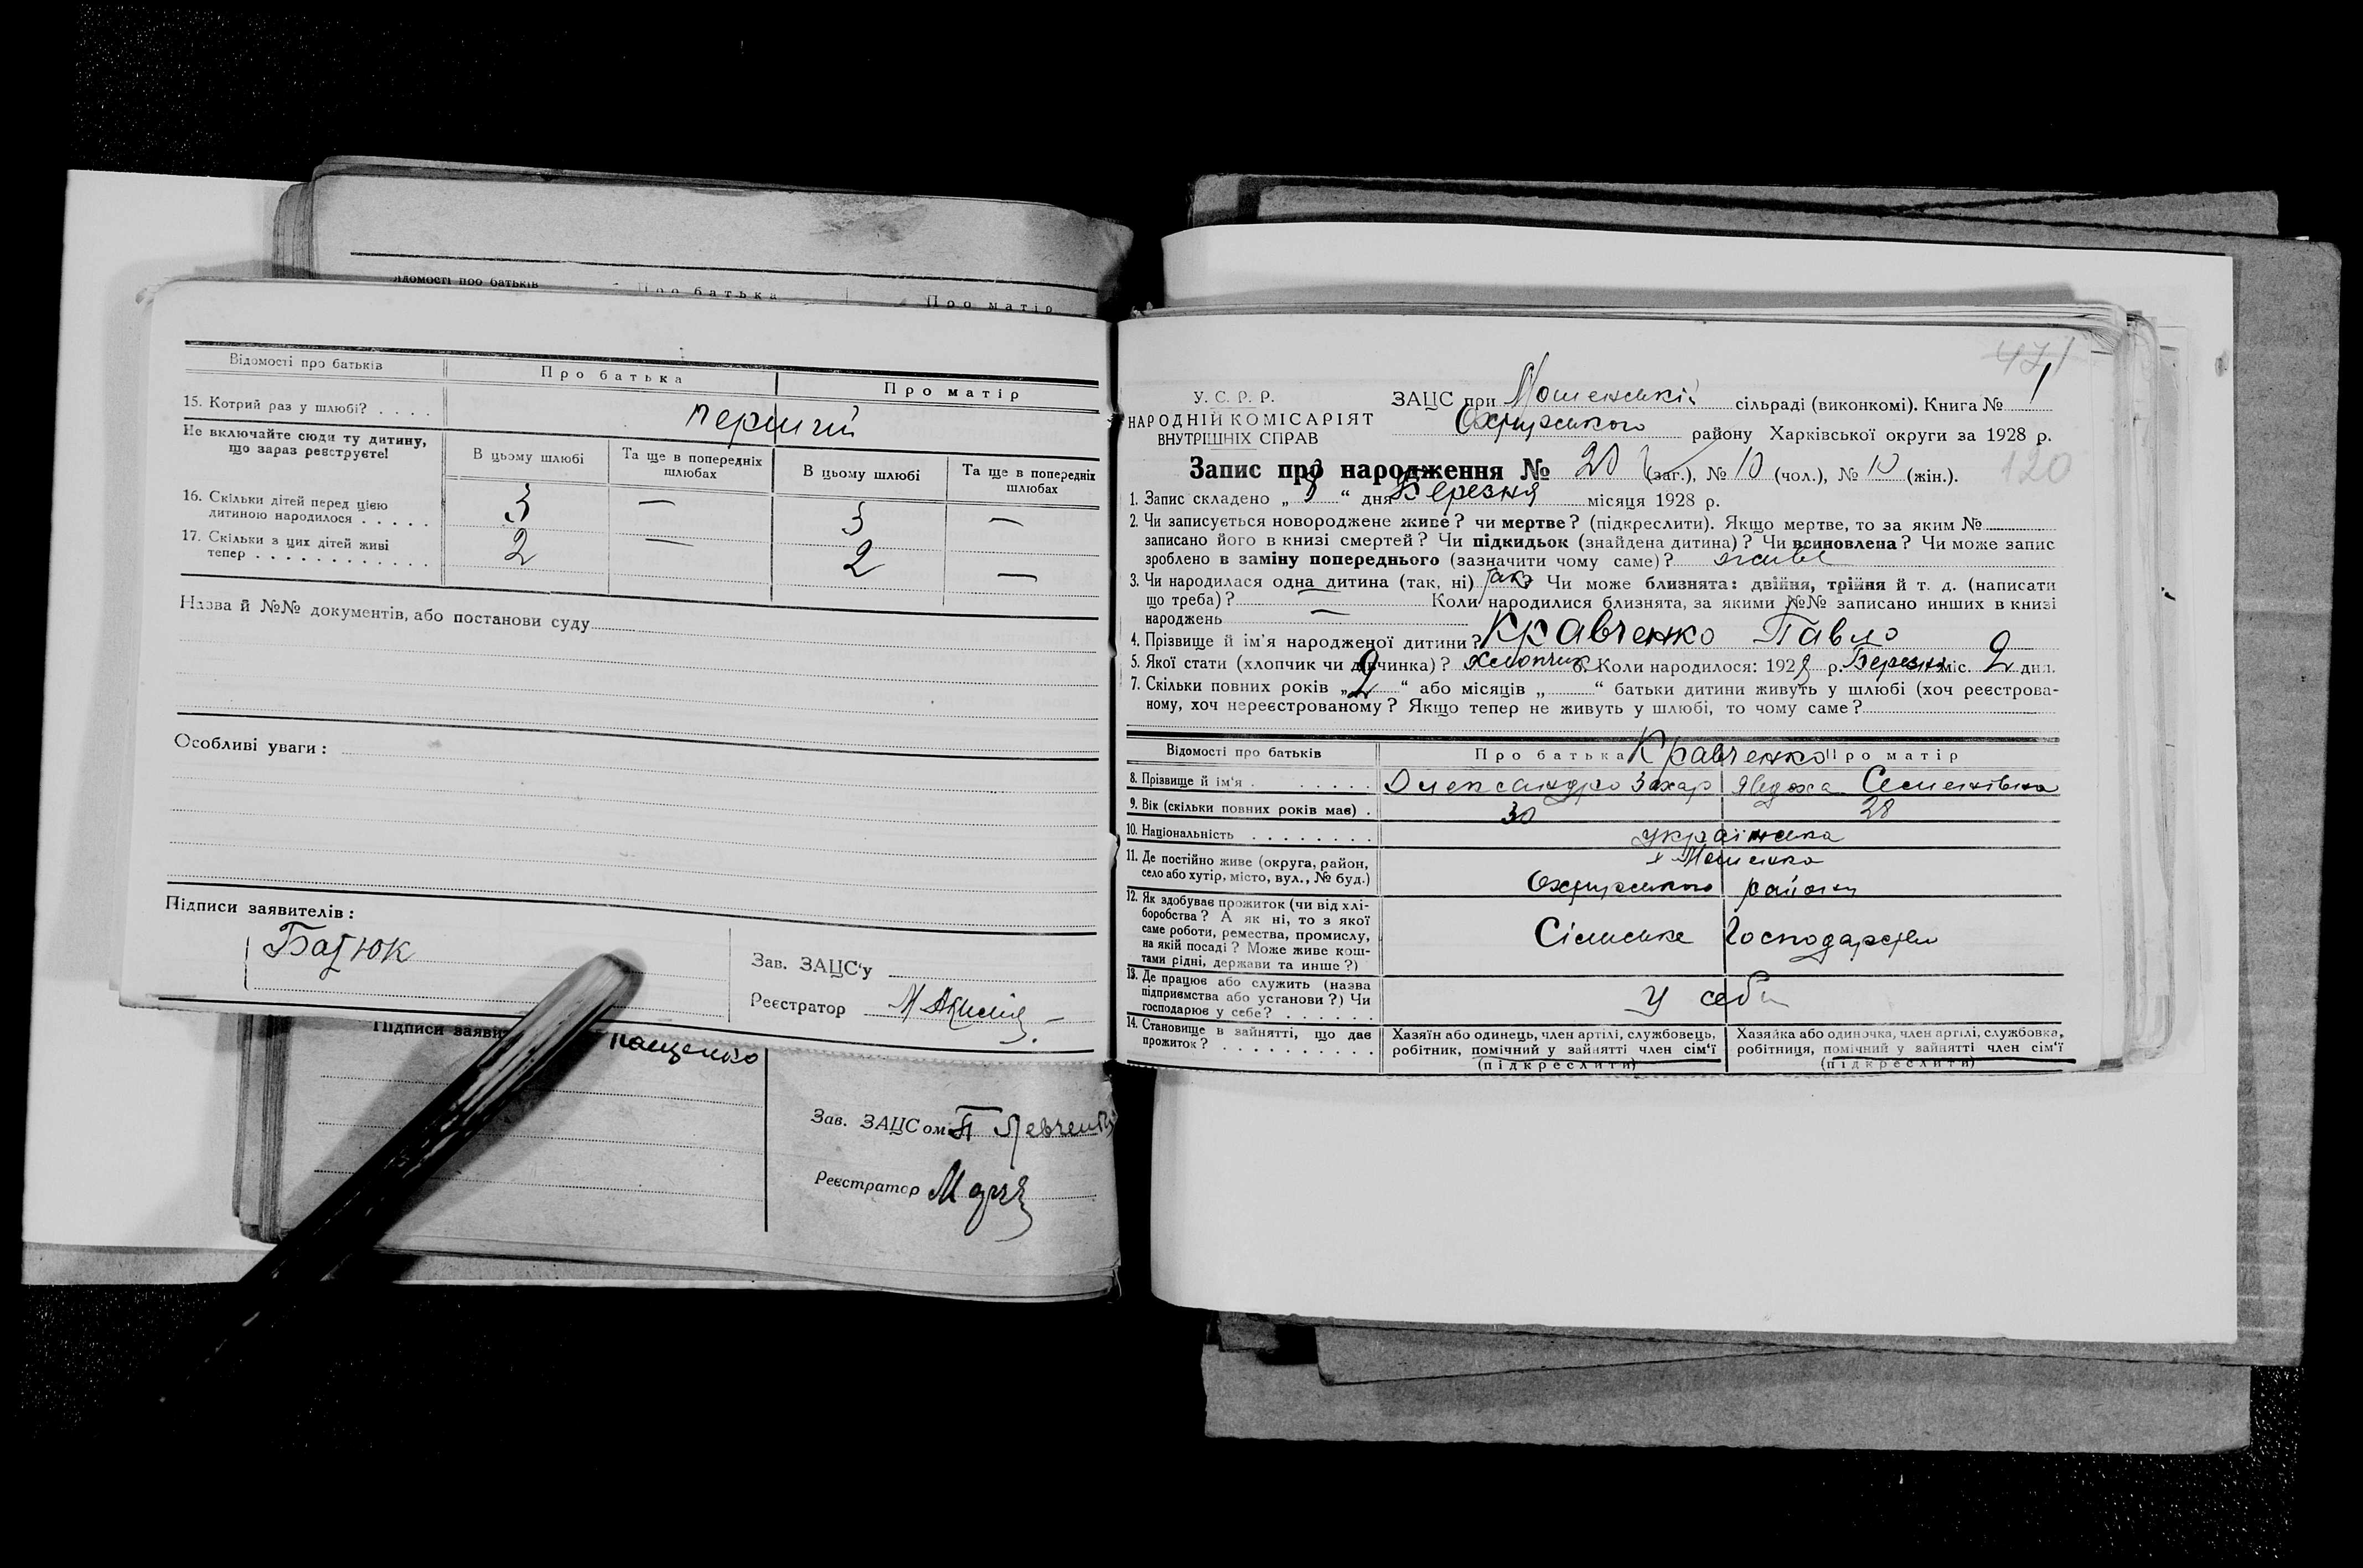 Відомості про батьків Про батька Про матір
15. Котрий раз у шлюбі? . . . . перший
Не включайте сюди ту дитину, що зараз реєструєте!
В цьому шлюбі Та ще в попередніх шлюбах В цьому шлюбі Та ще в попередніх шлюбах
16. Скільки дітей перед цією
дитиною народилося . . . . . 3 — 3 —
17. Скільки з цих дітей живі
тепер . . . . . . . . . . . . 2 — 2 —
Назва й №№ документів, або постанови суду
Особливі уваги:
Підписи заявителів:
Батюк
Зав. ЗАЦС‘у
Реєстратор
Пащенко
Зав. ЗАЦСом П Левченко
Реєстратор
471
У. С. Р. Р.
НАРОДНІЙ КОМІСАРІЯТ
ВНУТРІШНІХ СПРАВ
ЗАЦС при Мошенській сільраді (виконкомі). Книга № 1
Охтирського району Харківської округи за 1928 р.
120
Запис про народження № 20 (заг.), № 10 (чол.), № 10 (жін.).
1. Запис складено „ 3 “ дня Березня місяця 1928 р.
2. Чи записується новороджене живе? чи мертве? (підкреслити). Якщо мертве, то за яким №
записано його в книзі смертей? Чи підкидьок (знайдена дитина)? Чи всиновлена? Чи може запис
зроблено в заміну попереднього (зазначити чому саме)? живе
3. Чи народилася одна дитина (так, ні) так Чи може близнята: двійня, трійня й т. д. (написати
що треба)? — Коли народилися близнята, за якими №№ записано инших в книзі
народжень —
4. Прізвище й ім‘я народженої дитини? Кравченко Павло
5. Якої стати (хлопчик чи дівчинка)? хлопчик 6. Коли народилося: 1928 р. Березня міс. 2 дня.
7. Скільки повних років „ 9 “ або місяців „ “ батьки дитини живуть у шлюбі (хоч реєстрова-
ному, хоч нереєстрованому? Якщо тепер не живуть у шлюбі, то чому саме?
Відомості про батьків Про батька Кравченко Про матір
8. Прізвище й ім‘я . . . . . . Олександро Захар Явдоха Семенівна
9. Вік (скільки повних років має) . 30 28
10. Національність . . . . . . . . українська
11. Де постійно живе (округа, район,
село або хутір, місто, вул., № буд.) х Мошенка
Охтирського району
12. Як здобуває прожиток (чи від хлі-
боробства? А як ні, то з якої
саме роботи, ремества, промислу,
на якій посаді? Може живе кош-
тами рідні, держави та инше?) Сільське Господарство
13. Де працює або служить (назва
підприємства або установи?) Чи
господарює у себе? . . . . . . У себе
14. Становище в зайнятті, що дає
прожиток? . . . . . . . . . .
Хазяїн або одинець, член артілі, службовець,
робітник, помічний у зайнятті член сім‘ї
(підкреслити)
Хазяйка або одиночка, член артілі, службовка,
робітниця, помічний у зайнятті член сім‘ї
(підкреслити)